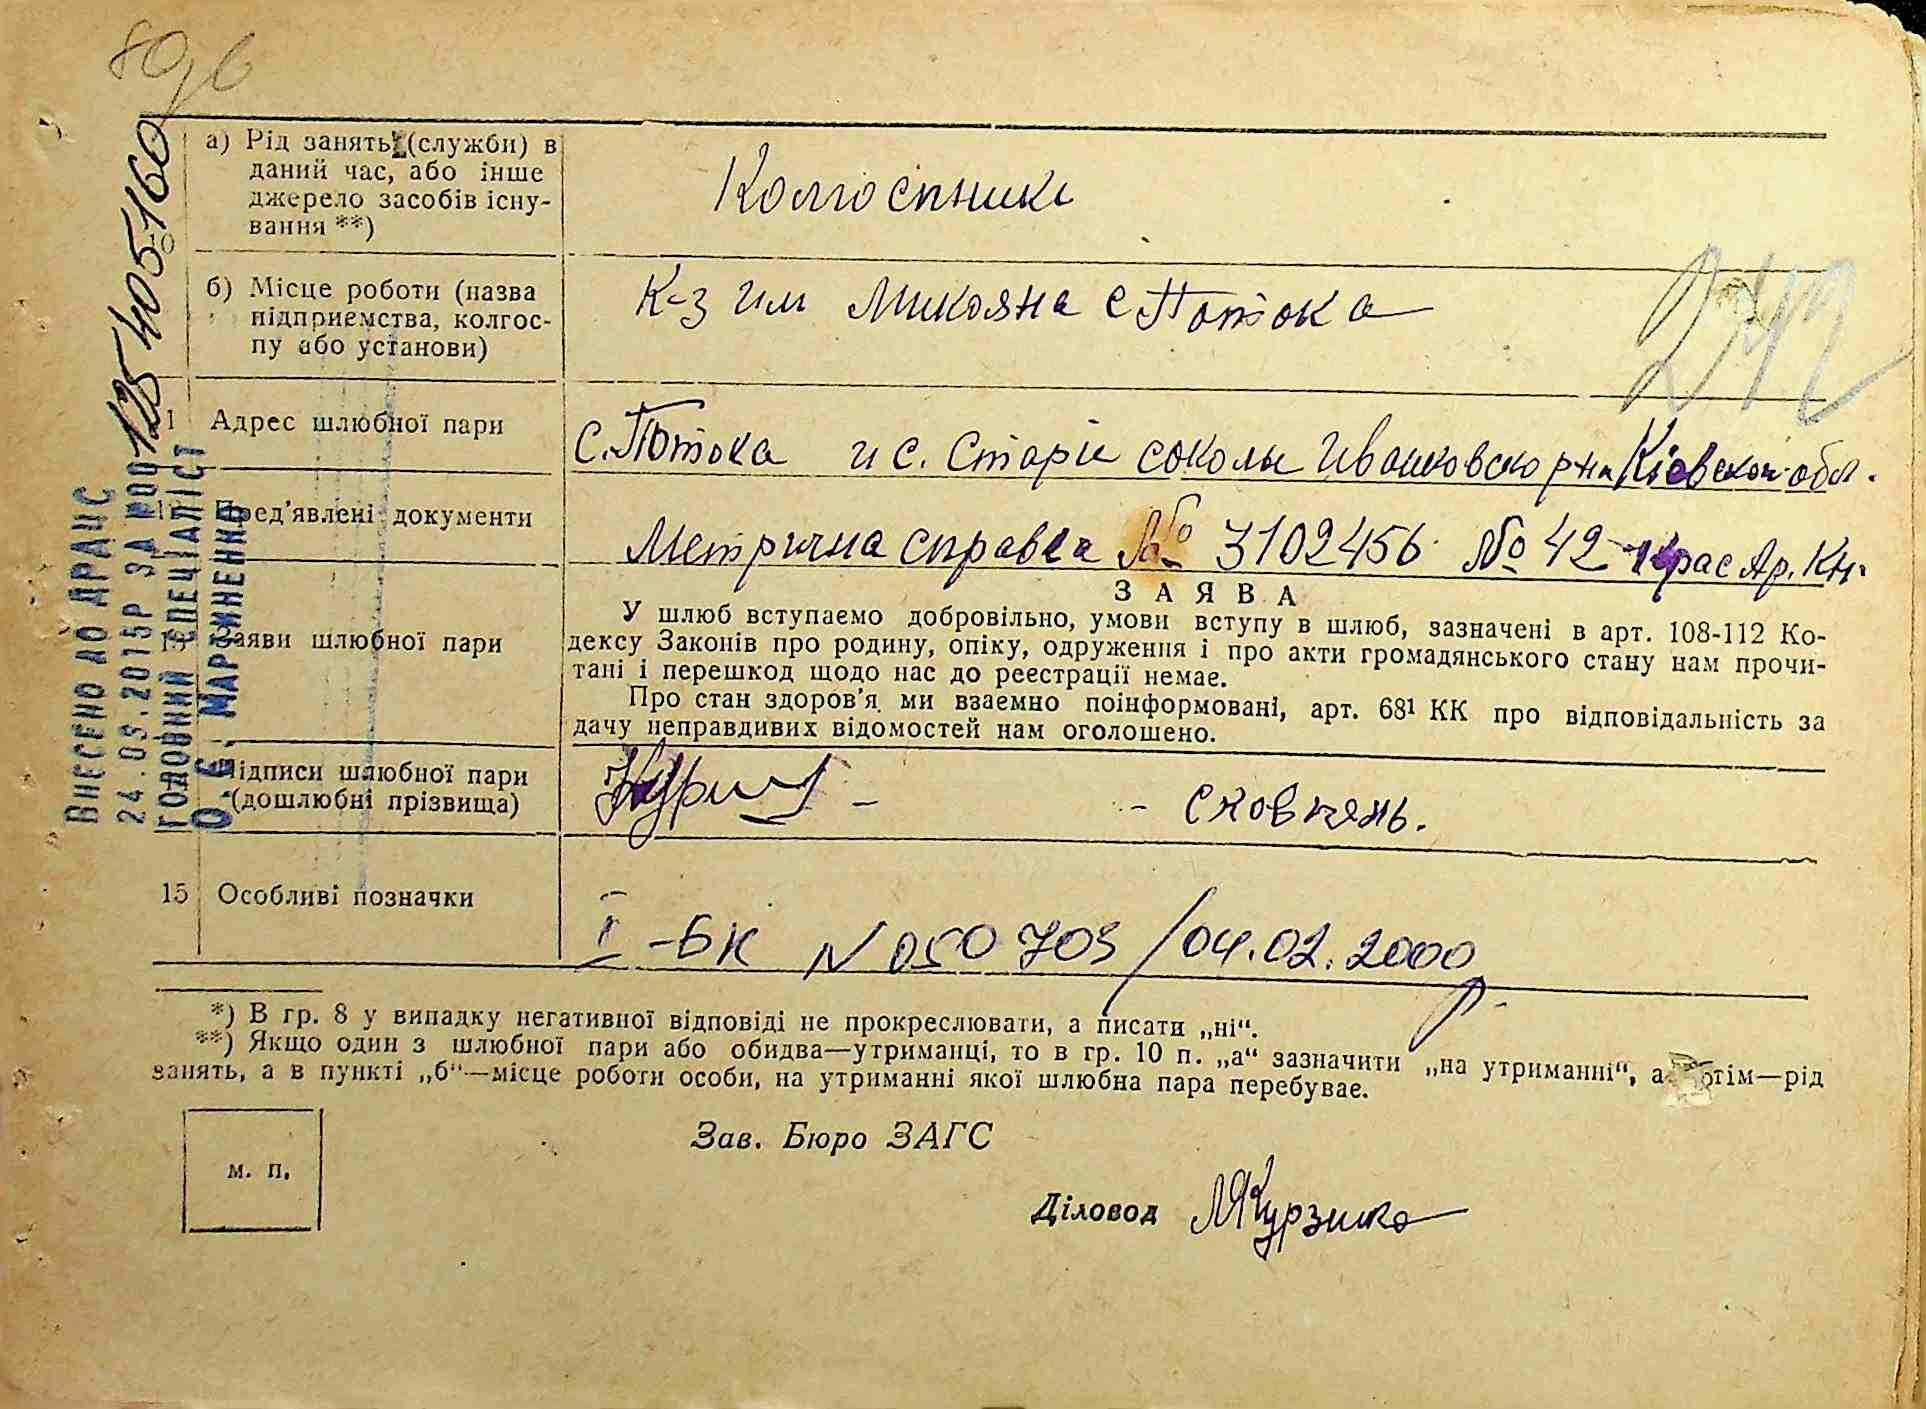 80
а) Рід занять (служби) в
даний час, або інше
джерело засобів існу-
вання **)
Колгоспники
б) Місце роботи (назва
підприемства, колгос-
пу або установи)
К-з им Микояна с Потока
242
Адрес шлюбної пари
с. Потока и с. Старіе соколы Иванковского р-на Кіевской обл.
Пред'явлені документи
Метрична справка № 3102456 № 42
ЗАЯВА
Заяви шлюбної пари
У шлюб вступаемо добровільно, умови вступу в шлюб, зазначені в арт. 108-112 Ко-
дексу Законів про родину, опіку, одруження і про акти громадянського стану нам прочи-
тані і перешкод щодо нас до реестрації немае.
Про стан здоров'я ми взаемно поінформовані, арт. 68¹ КК про відповідальність за
дачу неправдивих відомостей нам оголошено.
Підписи шлюбної пари
(дошлюбні прізвища)
- - сковпень.
15 Особливі позначки
I-БК N 050703/04.02.2000р.
*) В гр. 8 у випадку негативної відповіді не прокреслювати, а писати „ні“.
**) Якщо один з шлюбної пари або обидва—утриманці, то в гр. 10 п. „а“ зазначити „на утриманні“, а потім—рід
занять, а в пункті „б“—місце роботи особи, на утриманні якої шлюбна пара перебувае.
м. п.
Зав. Бюро ЗАГС
Діловод
Внесено до ДРАЦС
24.09.2015р за №00125405160
Головний спеціаліст
О.Є. Мартиненко